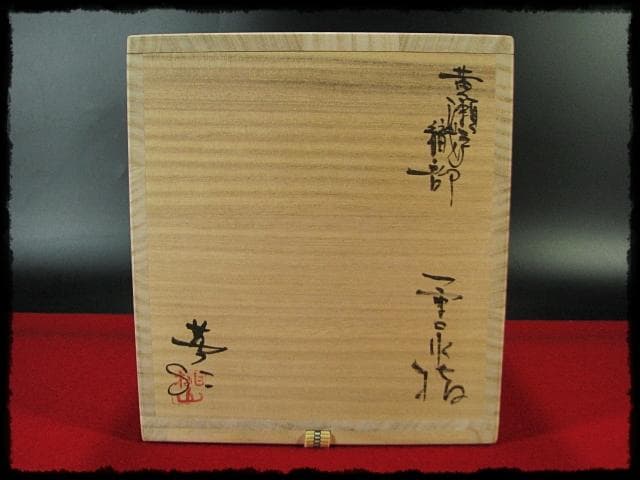 黄瀬戸
織部
一重口水指